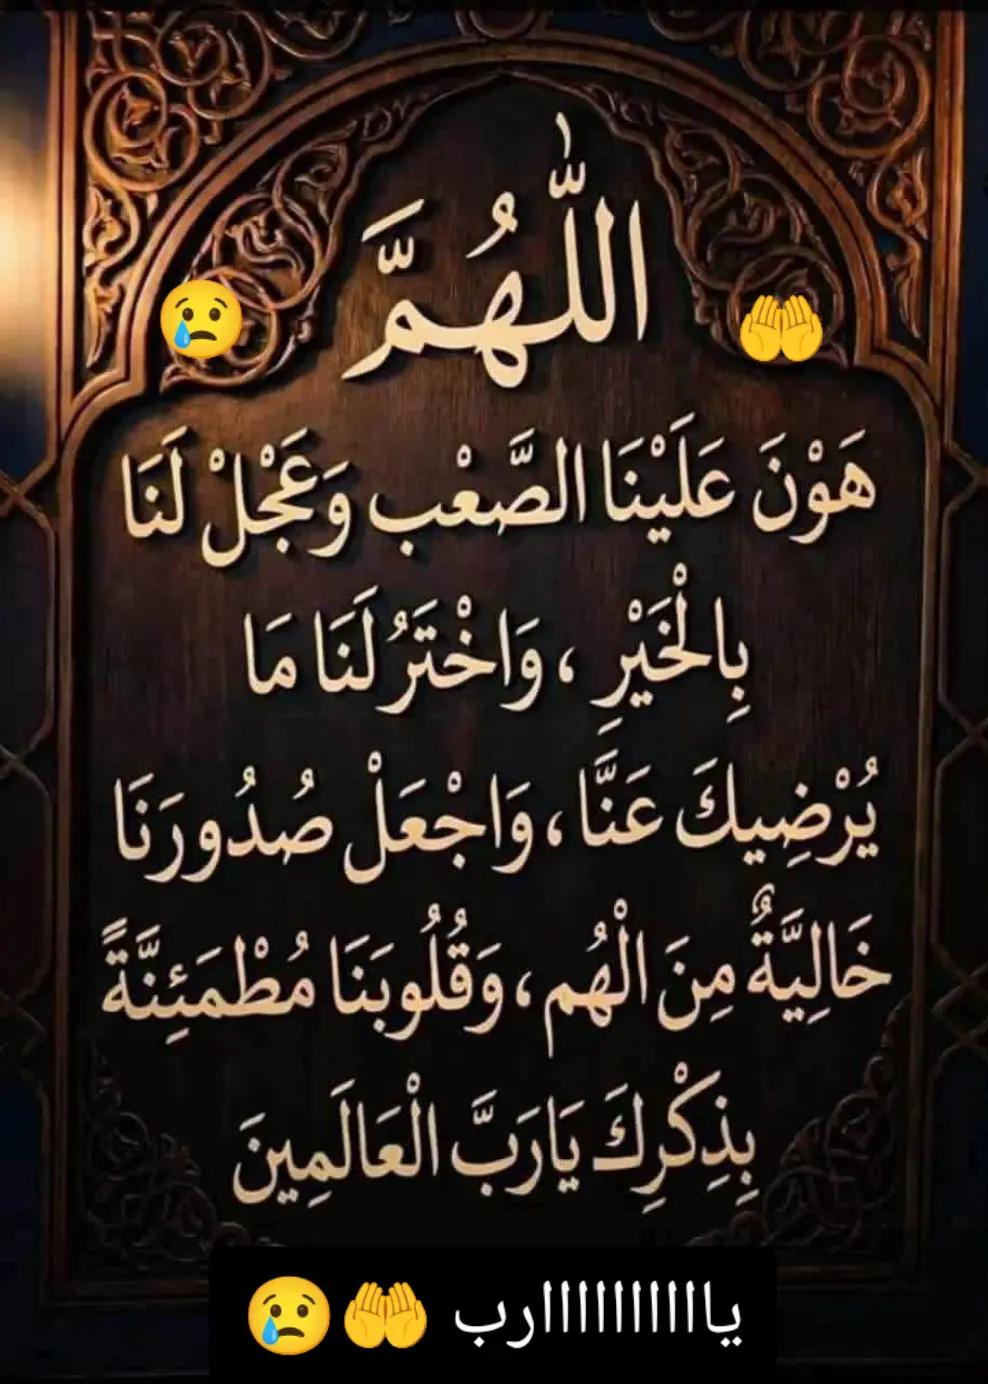 اللّٰهُمَّ
هَوْنَ عَلَيْنَا الصَّعْب وَعَجْلْ لَنَا
بِالْخَيْرِ ، وَاخْتَرُ لَنَا مَا
يُرْضِيكَ عَنَّا ، وَاجْعَلْ صُدُورَنَا
خَالِيَّةٌ مِنَ الْهُم ، وَقُلُوبَنَا مُطْمَئِنَّةً
بِذِكْرِكَ يَارَبَّ الْعَالَمِينَ
يااااااااااارب